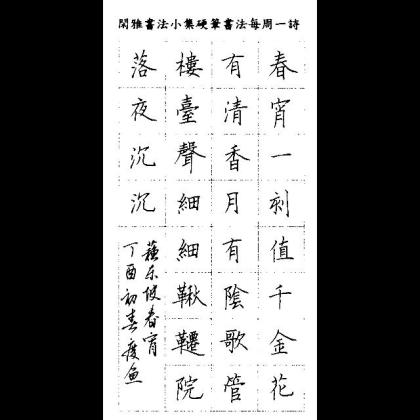 閑雅書法小集硬筆書法每周一詩
春宵一刻值千金花
有清香月有陰歌管
樓臺聲細細鞦韆院
落夜沉沉
蘇东坡春宵
丁酉初春度魚